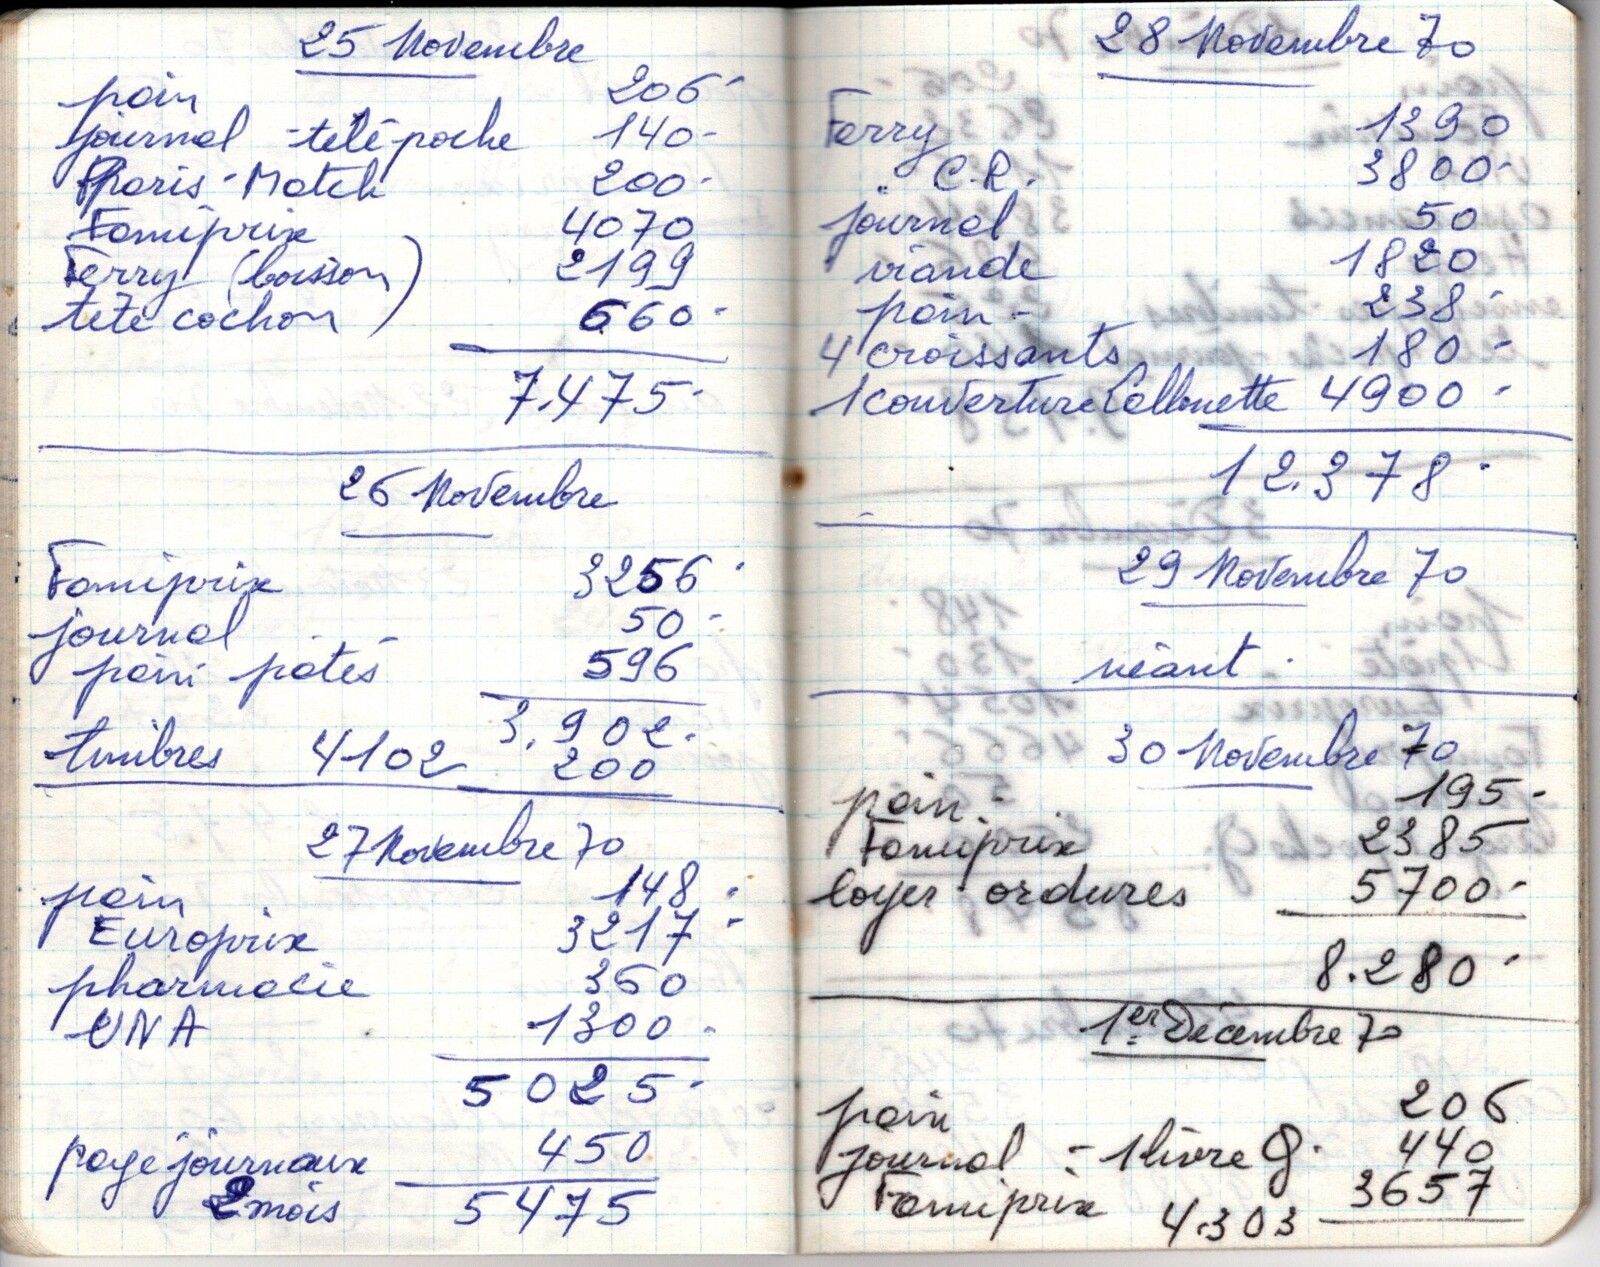 25 Novembre
pain 206-
journal - télé poche 140-
Paris-Match 200-
Famiprix 4070
Ferry (boisson) 2199
tête cochon) 660-
7.475-
26 Novembre
Famiprix 3256-
journal 50-
pain patés 596
3.902-
timbres 4102 200
27 Novembre 70
pain 148-
Europrix 3217-
pharmacie 360
UNA 1300-
5025-
paye journaux 450
2 mois 5475
28 Novembre 70
Ferry 1390
" C.R. 3800-
journal 50
viande 1820
pain- 238
4 croissants 180-
1 couverture 4900-
12.378-
29 Novembre 70
néant.
30 Novembre 70
pain- 195-
Famiprix 2385
loyer ordures 5700-
8.280-
1er Décembre 70
pain 206
journal = 1 livre g. 440
Famiprix 4.303 3657